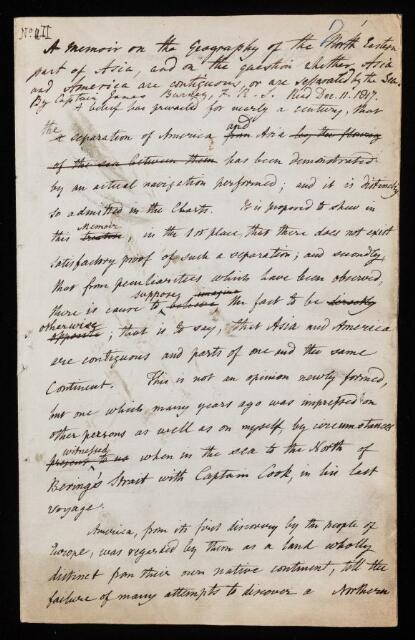 No. II
A Memoir on the Geography of the North Eastern
part of Asia, and on the question whether Asia
and America are contiguous, or are separated by the Sea.
By Captain James Burney, F.R.S. Read Dec. 11. 1817.
A belief has prevailed for nearly a century, that
the separation of America from and Asia by the flowing
of the sea between them has been demonstrated
by an actual navigation performed; and it is distinctly
so admitted in the Charts. It is proposed to shew in
this treatise Memoir, in the 1st place, that there does not exist
satisfactory proof of such a separation; and secondly,
that from peculiarities which have been observed,
there is cause to believe suppose imagine the fact to be directly
opposite otherwise; that is to say, that Asia and America
are contiguous and parts of one and the same
Continent. This is not an opinion newly formed,
but one which many years ago was impressed on
other persons as well as on myself, by circumstances
present to us witnessed when in the sea to the North of
Berings Strait with Captain Cook, in his last
voyage.
America, from its first discovery by the people of
Europe, was regarded by them as a land wholly
distinct from their own native continent, till the
failure of many attempts to discover a Northern